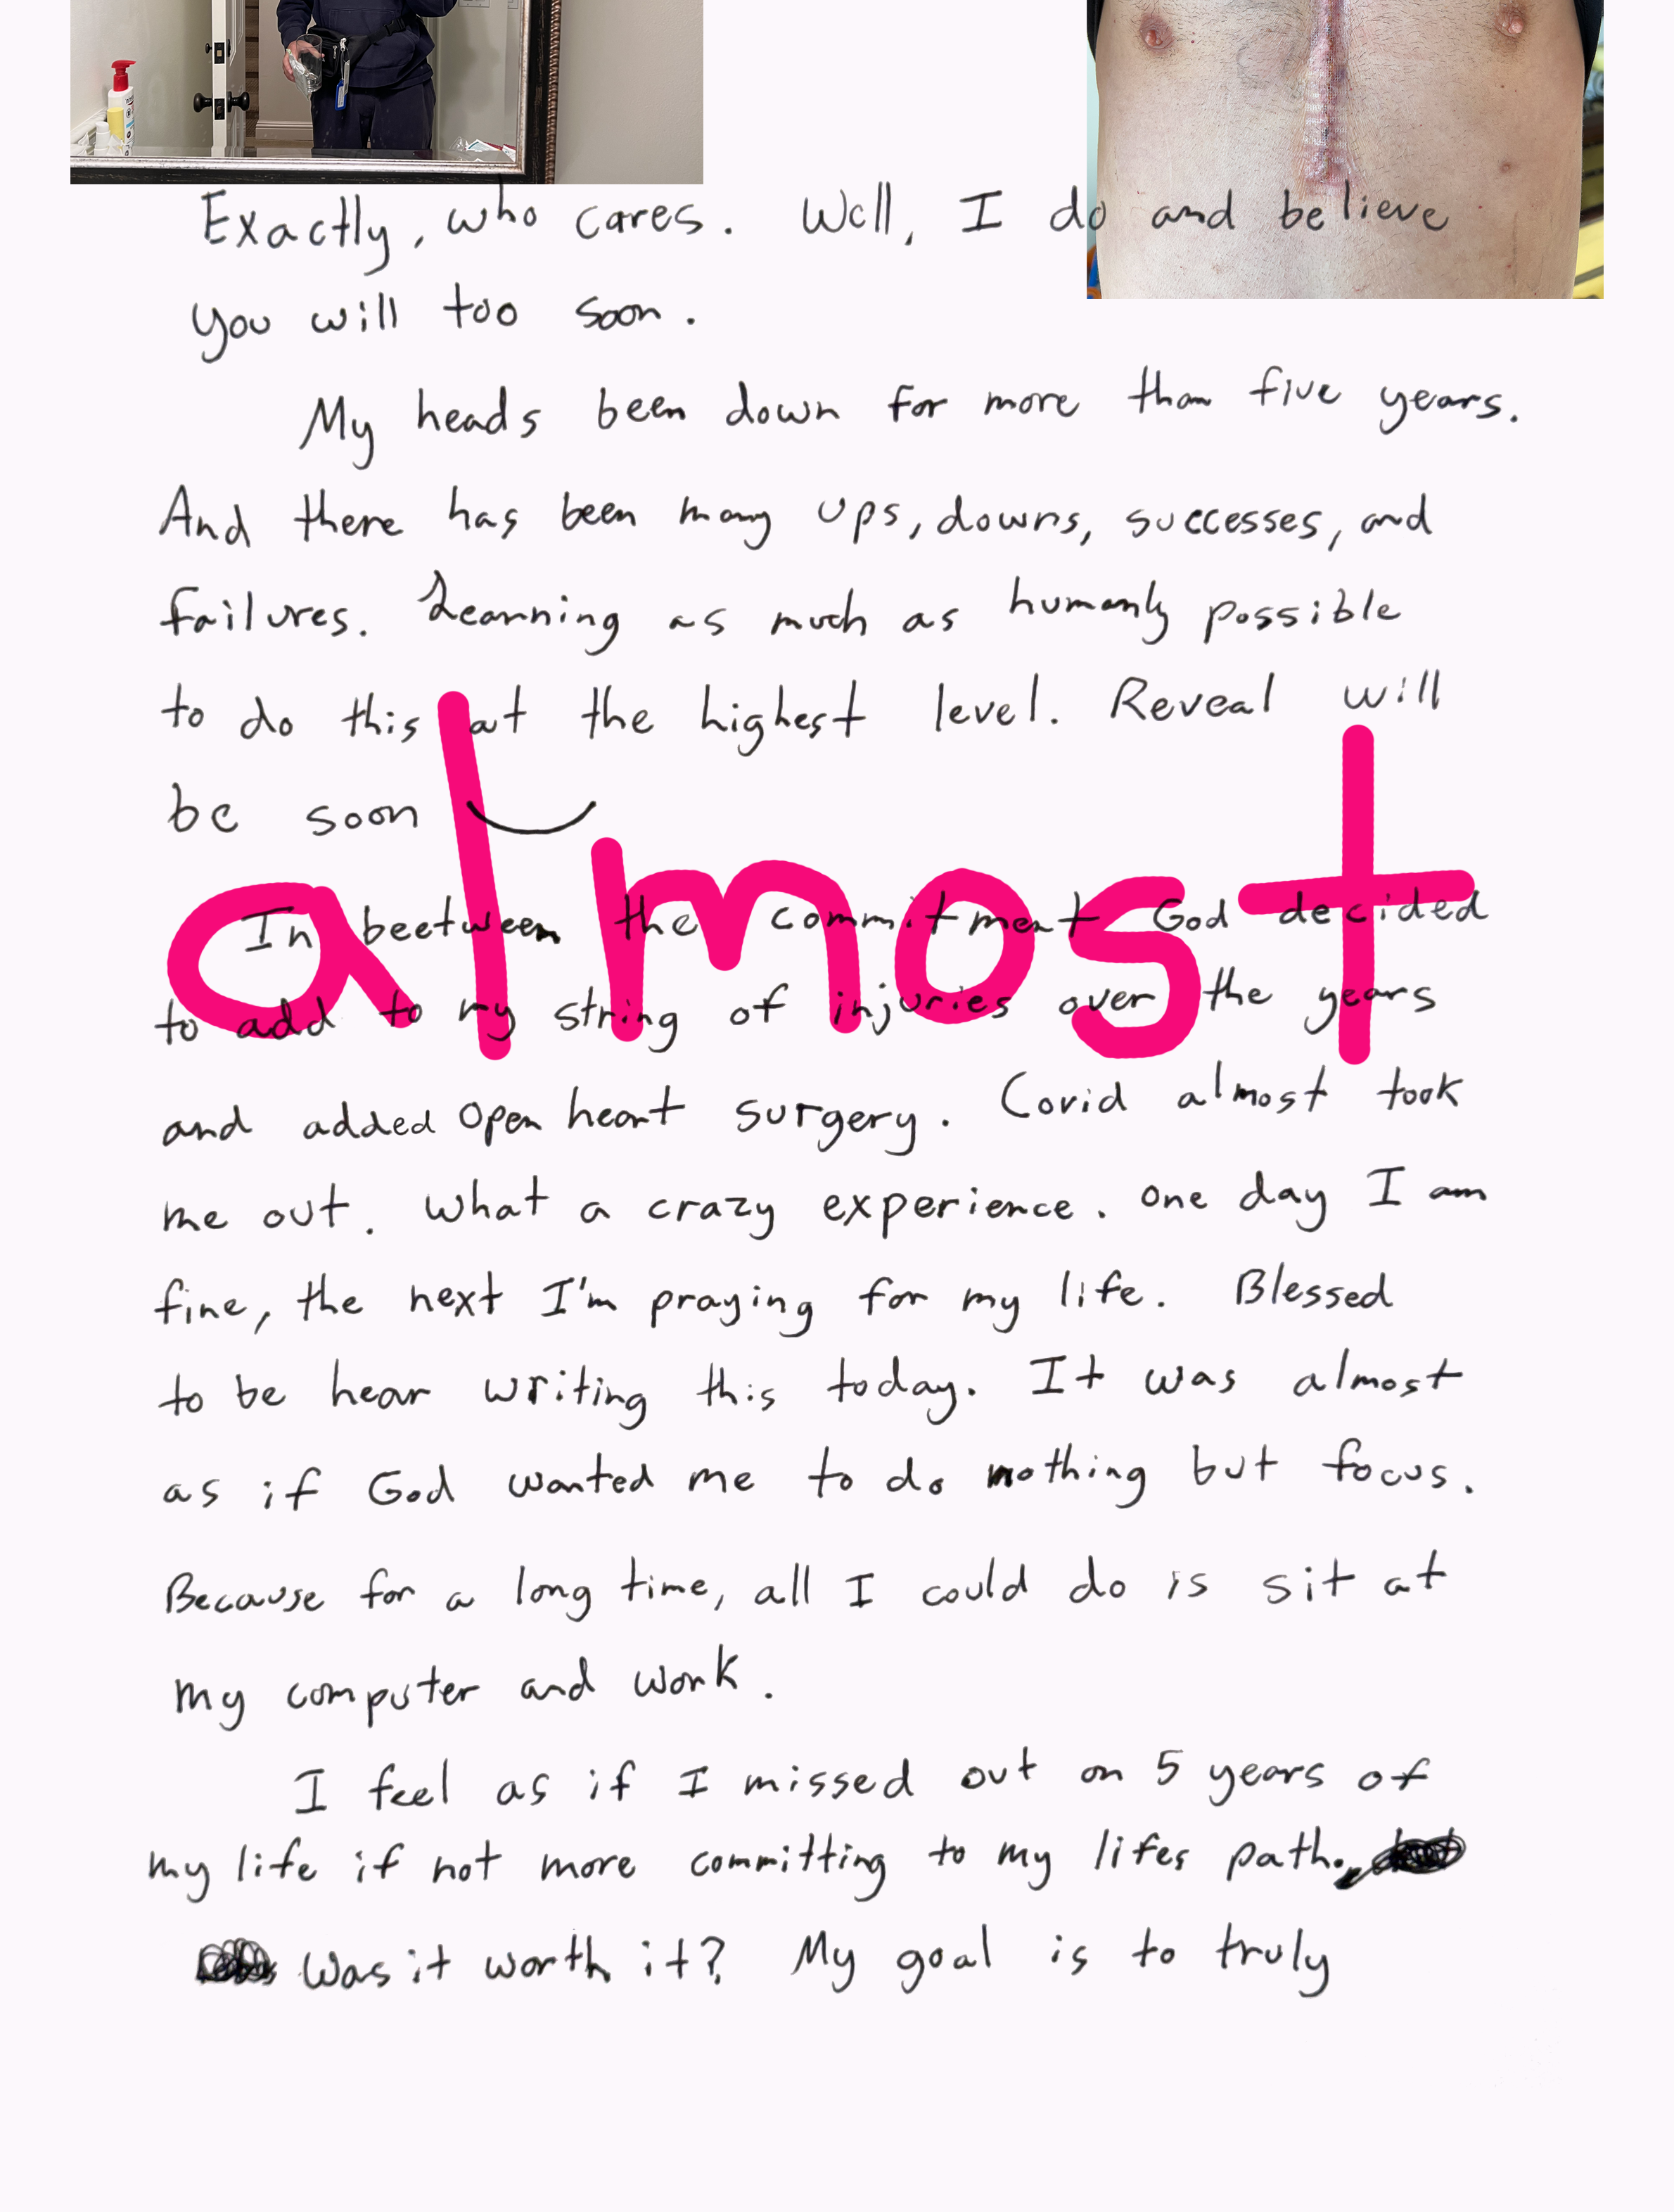 Exactly, who cares. Well, I do and believe
you will too soon.
My heads been down for more than five years.
And there has been many ups, downs, successes, and
failures. Learning as much as humanly possible
to do this at the highest level. Reveal will
be soon
almost
In beetween the commitment God decided
to add to my string of injuries over the years
and added open heart surgery. Covid almost took
me out. What a crazy experience. One day I am
fine, the next I'm praying for my life. Blessed
to be hear writing this today. It was almost
as if God wanted me to do nothing but focus.
Because for a long time, all I could do is sit at
my computer and work.
I feel as if I missed out on 5 years of
my life if not more committing to my lifes path.
Was it worth it? My goal is to truly